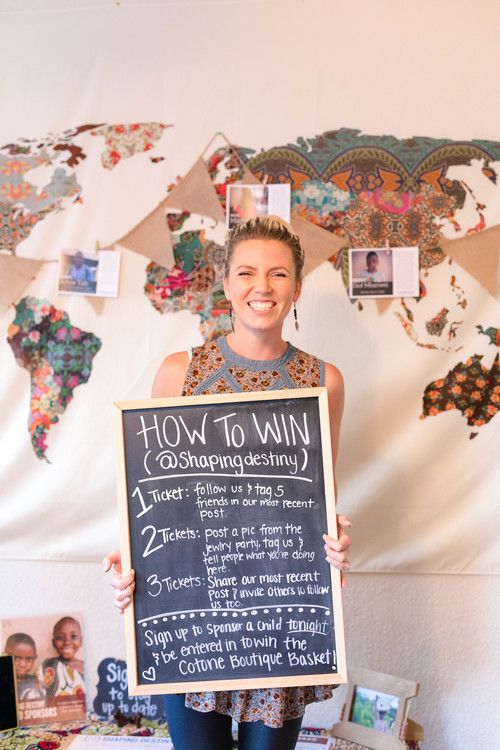 HOW TO WIN
(@Shapingdestiny)
1 Ticket: follow us & tag 5
friends in our most recent
post.
2 Tickets: post a pic from the
jewlry party, tag us &
tell people what you're doing
here.
3 Tickets: Share our most recent
Post & invite others to follow
us too.
Sign up to sponser a child tonight
& be entered in to win the
Cotone Boutique Basket!
SPONSORS
Sign
up to
up to date
SHAPING DESTINY